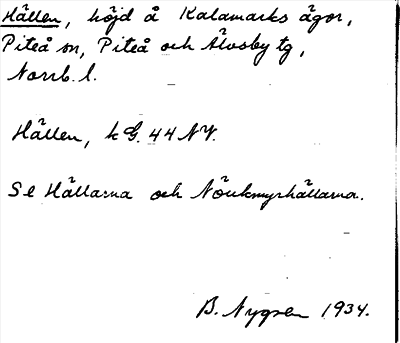 Hällen, höjd å Kalamarks ägor,
Piteå sn, Piteå och Älvsby tg,
Norrb. l.
Hällen, k G. 44 NV.
Se Hällarna och Nöukmyrhällarna.
B. Nygren 1934.